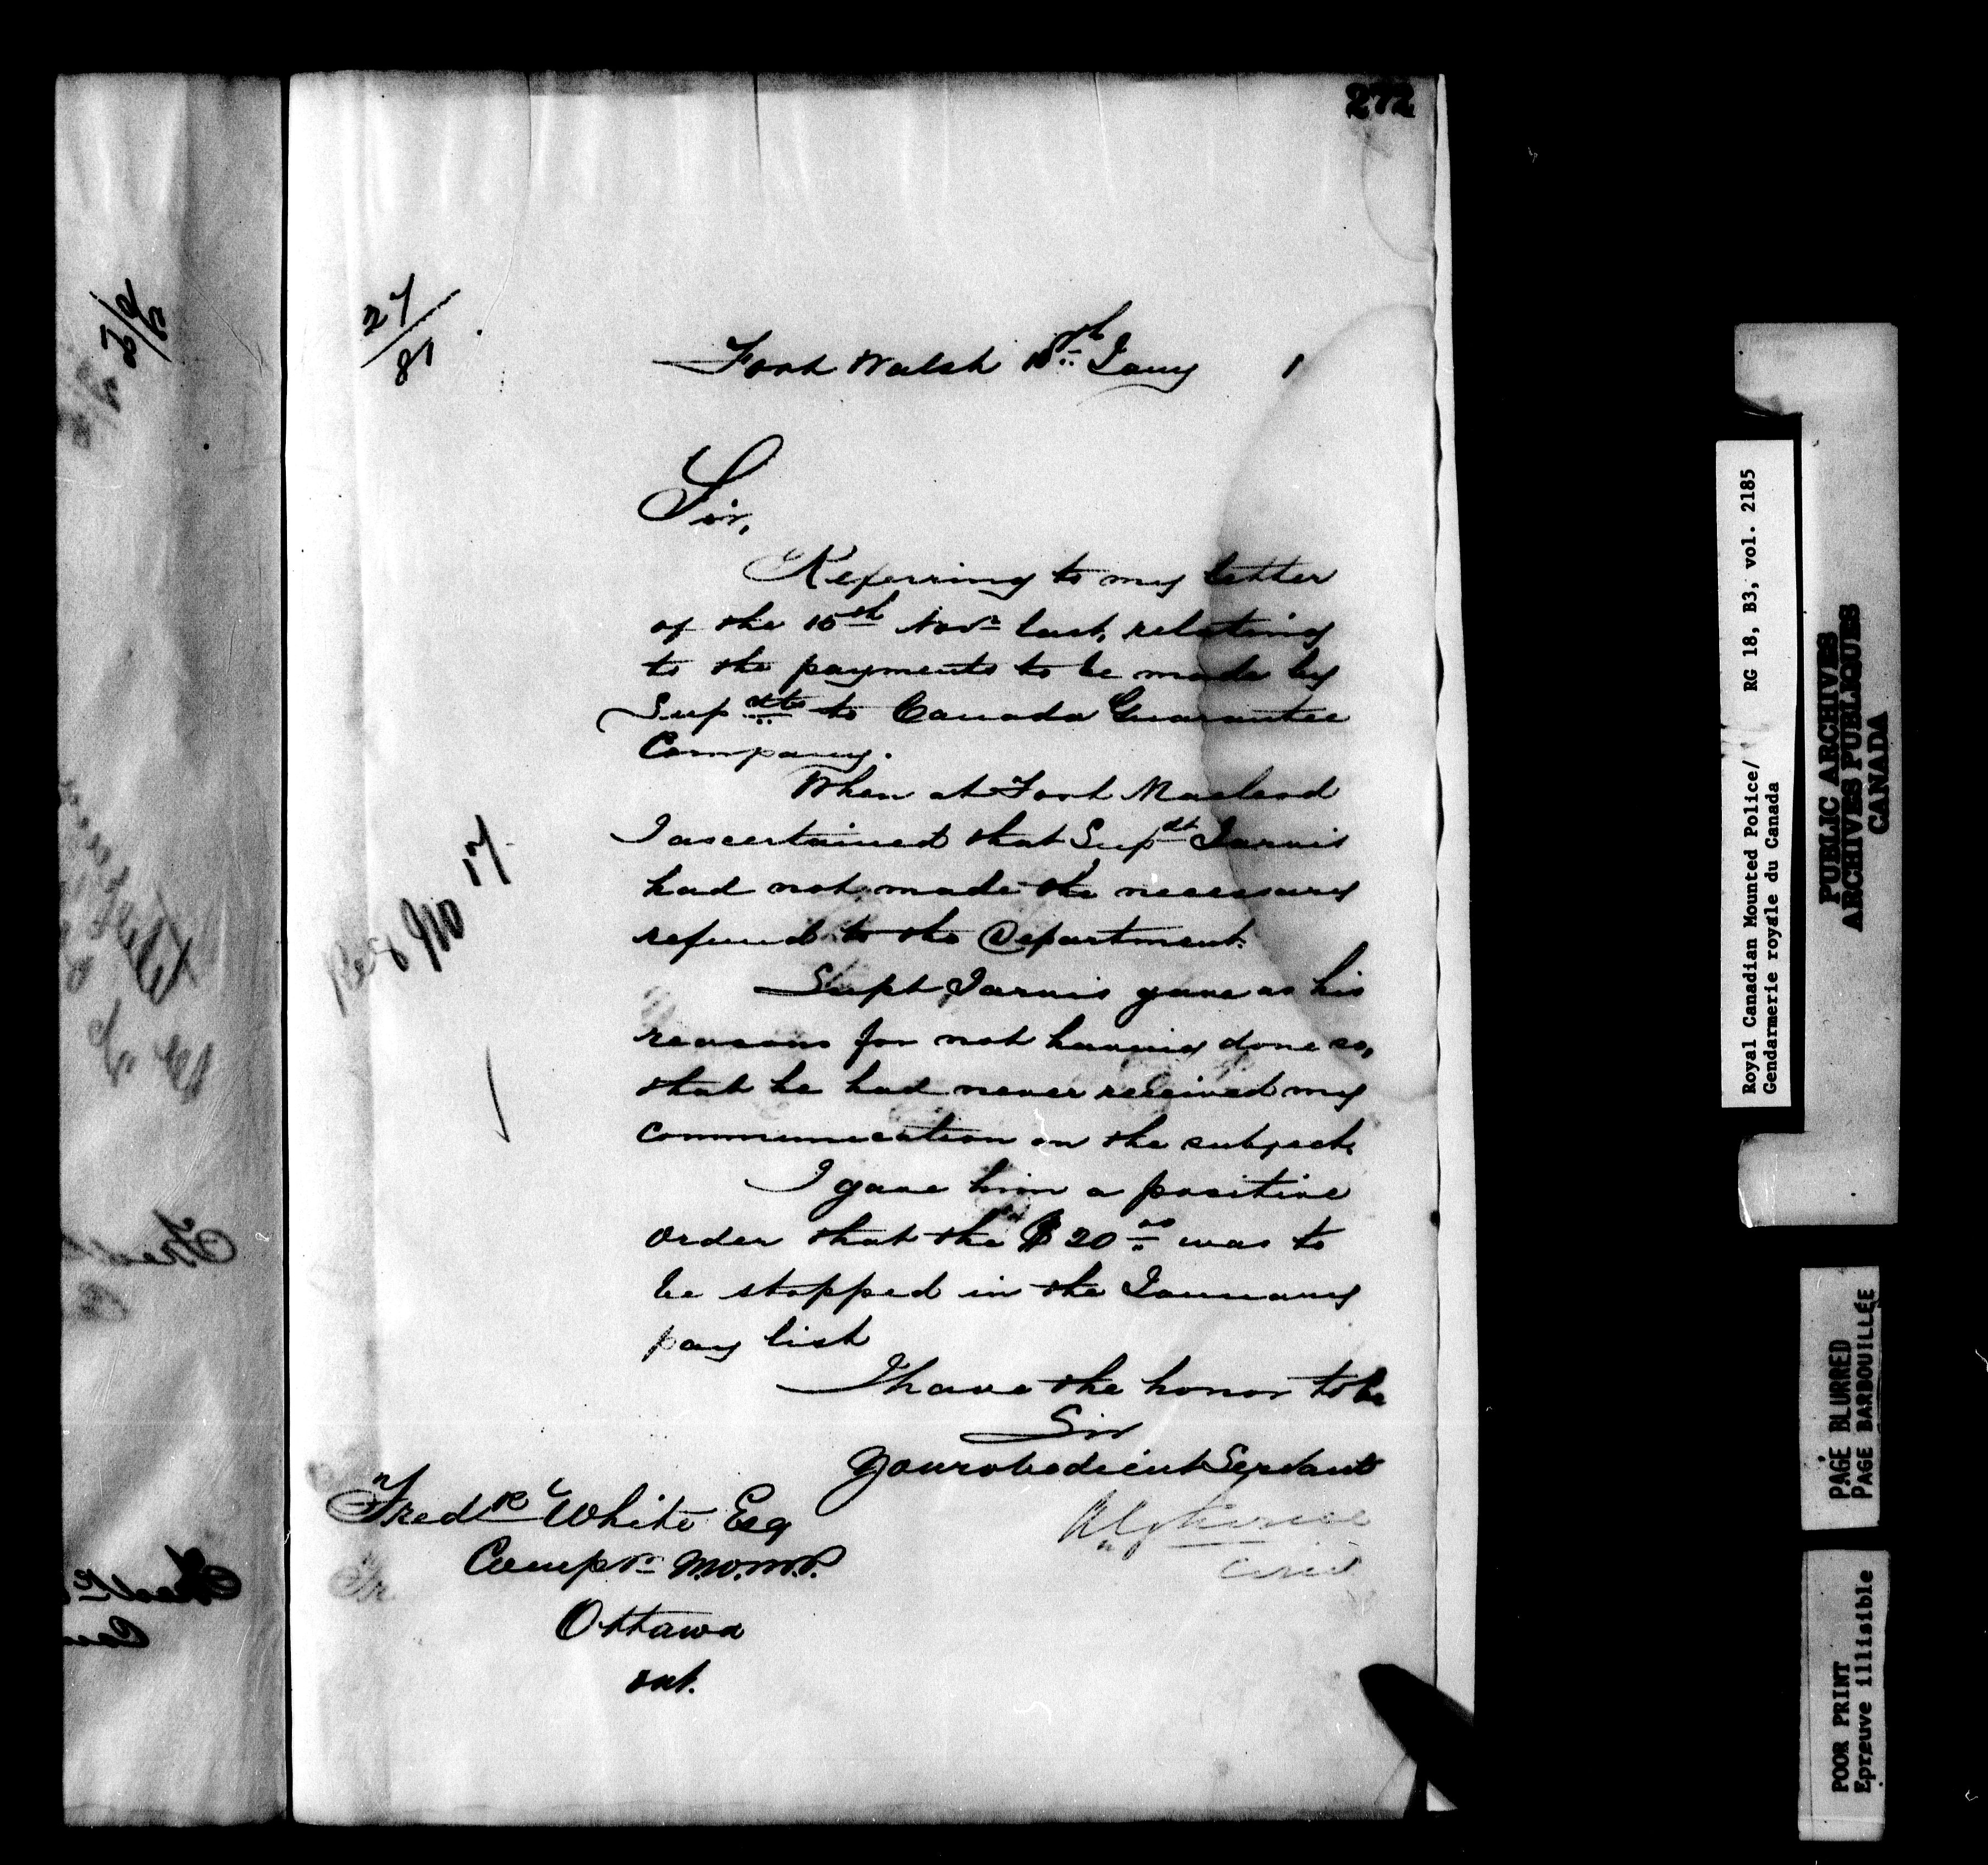 272
27/81
Fort Walsh 18th Jany 1
Sir,
Referring to my letter
of the 15th Novr last, relating
to the payments to be made by
Supdts to Canada Guarantee
Company.
When at Fort Macleod
I ascertained that Supdt Jarvis
had not made the necessary
refund to the Department.
Supt Jarvis gave as his
reasons for not having done so,
that he had never received my
communication on the subject.
I gave him a positive
order that the $20.00 was to
be stopped in the January
pay list
I have the honor to be
Sir
Your obedient Servant
Fredk White Esq
Compr N.W.M.P.
Ottawa
Ont.
17
Royal Canadian Mounted Police/ RG 18, B3, vol. 2185
Gendarmerie royale du Canada
PUBLIC ARCHIVES
ARCHIVES PUBLIQUES
CANADA
PAGE BLURRED
PAGE BARBOUILLÉE
POOR PRINT
Epreuve illisible